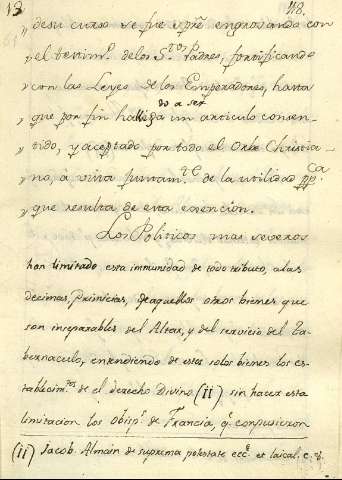 13 48.
" desu curso se fue spre engrosando con
" el testim.º delos S.tos Padres, fortificando
" con las Leyes de los Emperadores, hasta
do a ser
" que por fin ha un articulo consen-
" tido, y aceptado por todo el Orbe Christia-
" no, a vista juntam.te de la utilidad pp.ca
" que resulta de esta exencion.
Los Politicos mas severos
han limitado esta immunidad de todo tributo, alas
decimas, Primicias, deaquellos otros bienes que
son inseparables del Altar, y del servicio del Ta-
bernaculo, entendiendo de estos solos bienes los es-
tablecim.tos de el derecho Divino (ii) sin hacer esta
limitacion los Obisp.s de Francia, q.e compusieron
(ii) Jacob. Almain de suprema potestate ecc.ê et laical. c.